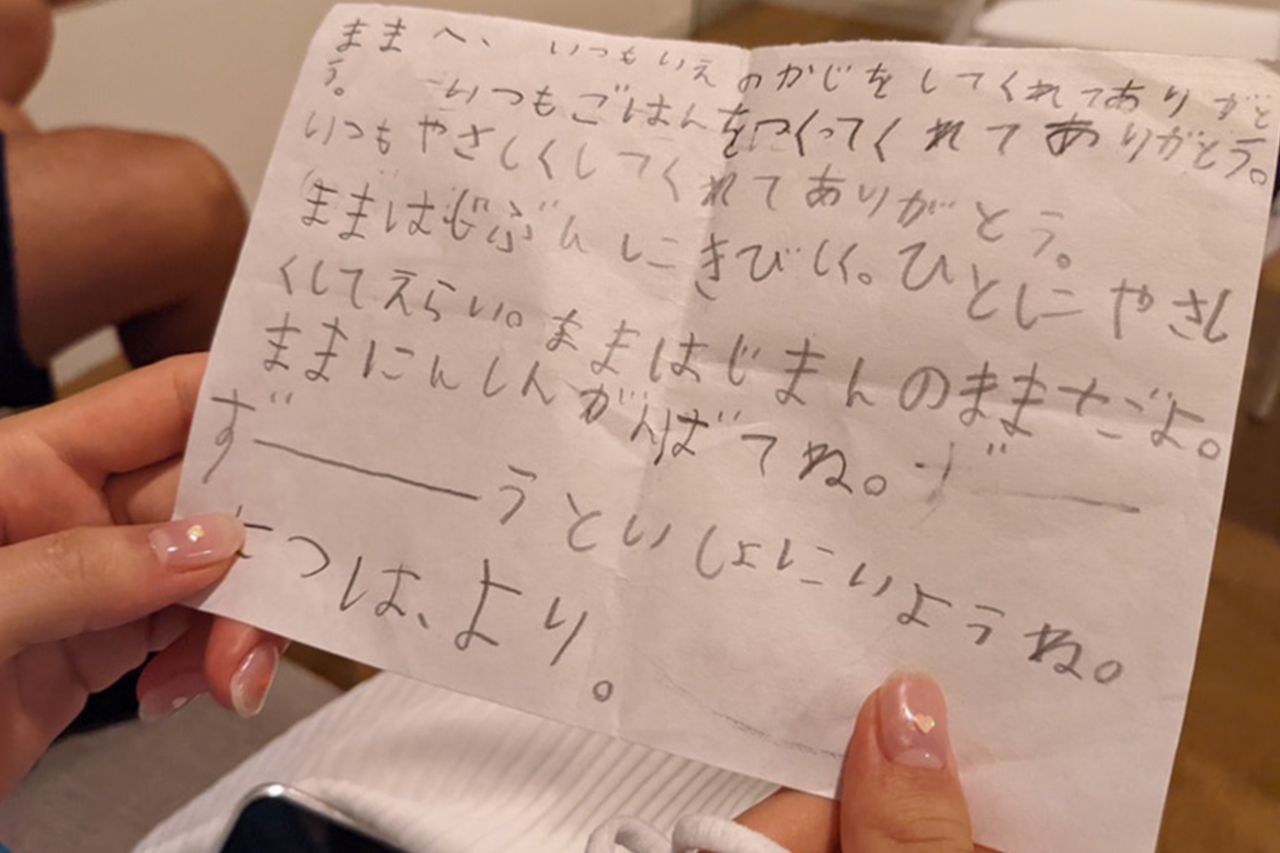 ままへ、いつもいえのかじをしてくれてありがと
う。いつもごはんをつくってくれてありがとう。
いつもやさしくしてくれてありがとう。
ままはじぶんにきびしく。ひとにやさし
くしてえらい。ままはじまんのままだよ。
ままにんしんがんばてね。ず——
ず———うといしょにいようね。
つは、より。